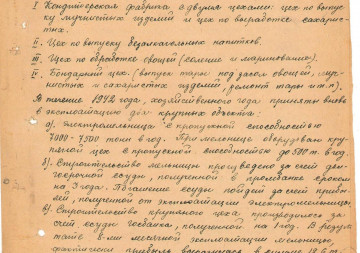 I Кондитерская фабрика с двумя цехами: цех по выпус-
ку мучнистых изделий и цех по выработке сахарис-
тых.
II. Цех по выпуску безалкогольных напитков.
III. Цех по обработке овощей (соление и маринование).
IV. Бондарный цех. (выпуск тары под засол овощей, муч-
нистых и сахаристых изделий, ремонт тары и т.п.).
В течение 1942 года, хозяйственного года приняты вновь
в эксплоатацию два крупных объекта:
а). Электромельница с пропускной способностью
7000-7500 тонн в год. При мельнице оборудован кру-
пяной цех с пропускной способностью до 500 т. в год.
б). Строительство мельницы произведено за счет дол-
госрочной ссуды, полученной в промбанке сроком
на 3 года. Погашение ссуды пойдет за счет прибы-
лей, полученной от эксплоатации электромельницы.
в). Строительство крупяного цеха, производилось за
счет ссуды госбанка, полученной на 1 год. В резуль
тате 8-ми месячной эксплоатации мельницы,
прибыль в сумме